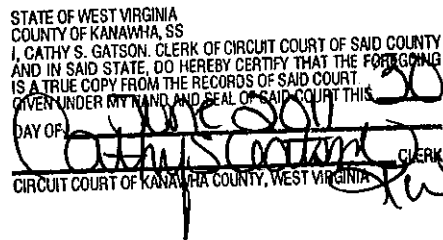 STATE OF WEST VIRGINIA
COUNTY OF KANAWHA, SS
I, CATHY S. GATSON. CLERK OF CIRCUIT COURT OF SAID COUNTY
AND IN SAID STATE, DO HEREBY CERTIFY THAT THE FOREGOING
IS A TRUE COPY FROM THE RECORDS OF SAID COURT.
GIVEN UNDER MY HAND AND SEAL OF SAID COURT THIS 20
DAY OF June 2011
Cathy S. Gatson CLERK
CIRCUIT COURT OF KANAWHA COUNTY, WEST VIRGINIA